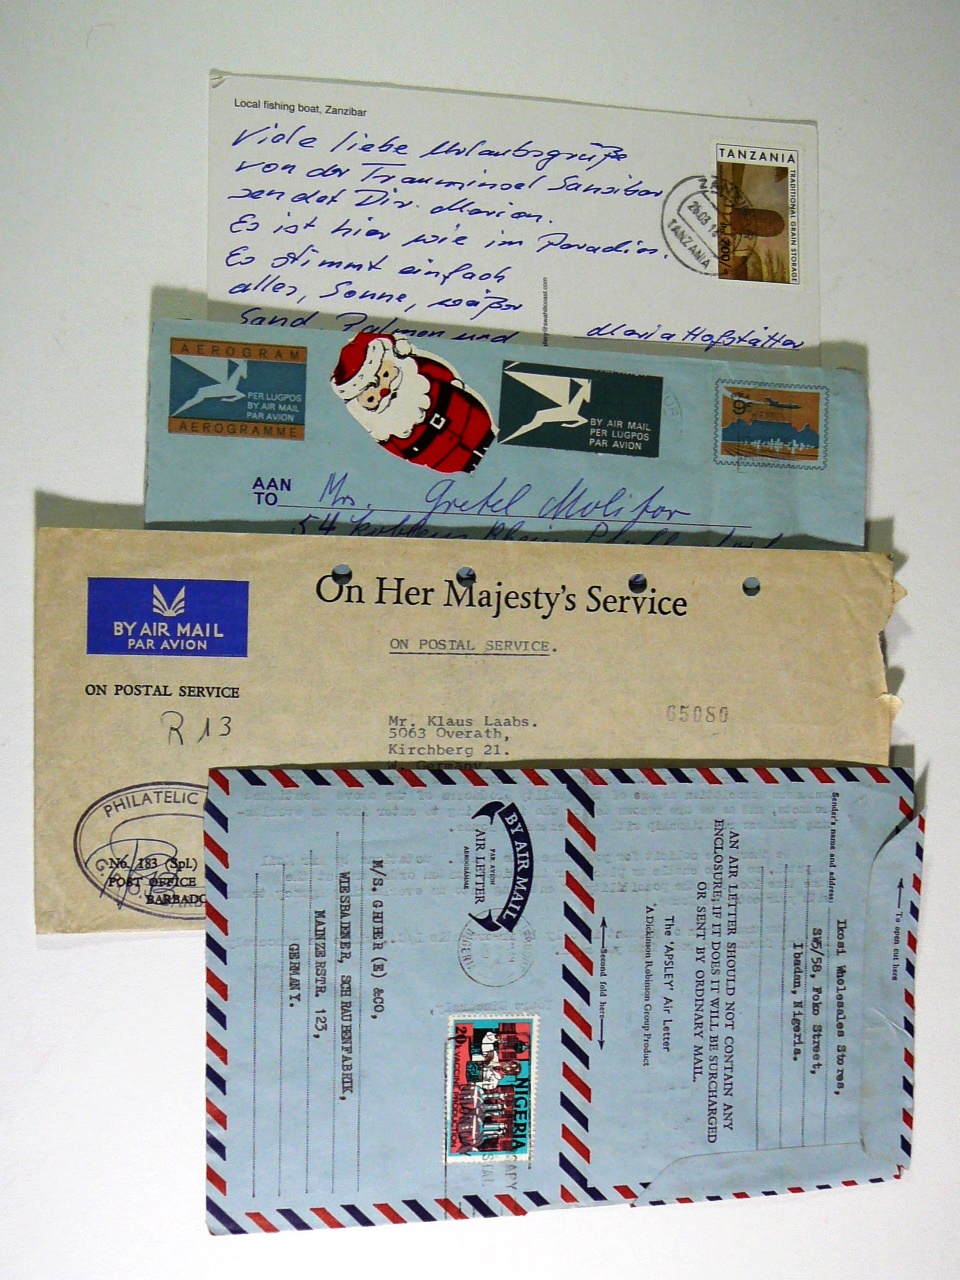 Local fishing boat, Zanzibar
Viele liebe Urlaubsgrüße
von der Trauminsel Sansibar
sendet Dir Marion.
Es ist hier wie im Paradies.
Es stimmt einfach
alles, Sonne, weißer
Sand Palmen und
Maria Hofstätter
TANZANIA
TRADITIONAL GRAIN STORAGE
TANZANIA
AEROGRAM
PER LUGPOS
BY AIR MAIL
PAR AVION
AEROGRAMME
BY AIR MAIL
PER LUGPOS
PAR AVION
AAN
TO
Mrs. Gretel Molitor
54 Koblenz Rhein
On Her Majesty's Service
BY AIR MAIL
PAR AVION
ON POSTAL SERVICE.
ON POSTAL SERVICE
R 13
65080
Mr. Klaus Laabs.
5063 Overath,
Kirchberg 21.
W. Germany.
PHILATELIC
No. 183 (Spl)
POST OFFICE
BARBADO
BY AIR MAIL
PAR AVION
AIR LETTER
AEROGRAMME
M/S. GHIER (E) &CO,
WIESBADENER, SCHRAUBENFABRIK,
MAINZERSTR. 123,
GERMANY.
NIGERIA
20k VACCINE PRODUCTION
Second fold here
The 'APSLEY' Air Letter
A Dickinson Robinson Group Product
AN AIR LETTER SHOULD NOT CONTAIN ANY
ENCLOSURE; IF IT DOES IT WILL BE SURCHARGED
OR SENT BY ORDINARY MAIL.
Sender's name and address:
Ikosi Wholesales Stores,
SW5/58, Foko Street,
Ibadan, Nigeria.
To open cut here